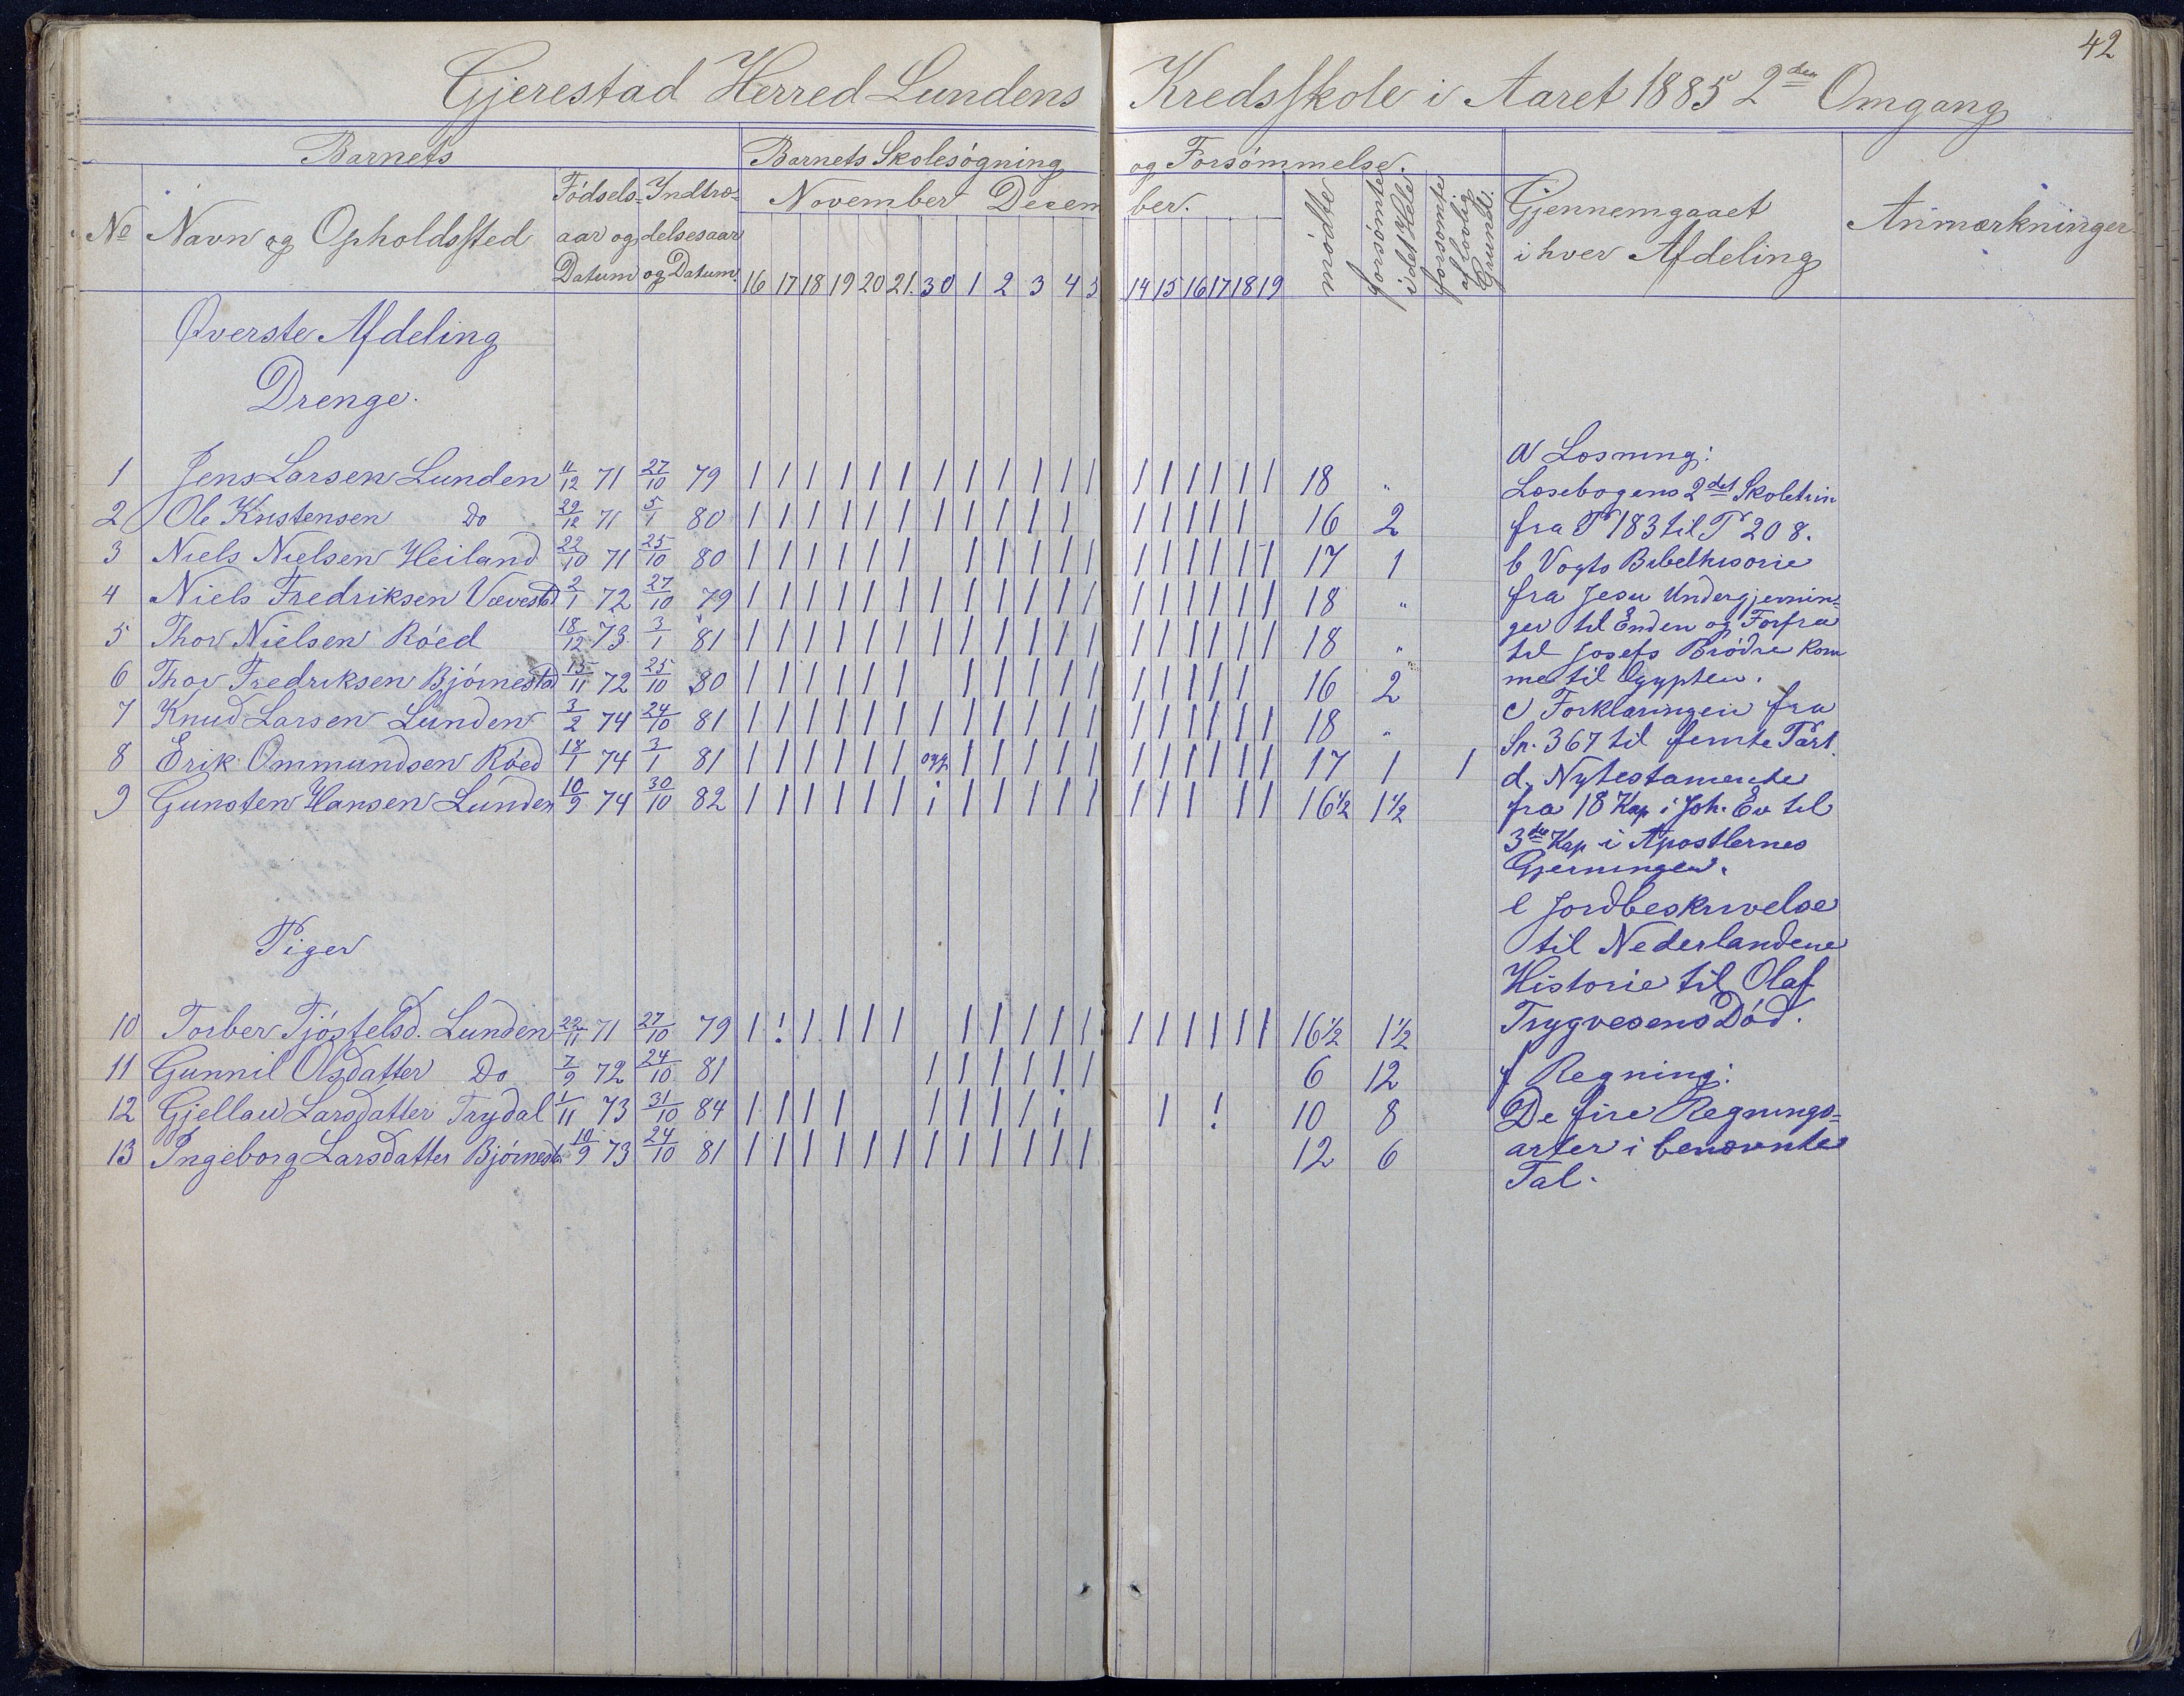 42
Gjerestad Herred Lundens Kredsskole i Aaret 1885 2den Omgang
Barnets Barnets Skolesøgning og Forsømmelse.
No Navn og Opholdssted Fødselsaar og Datum Indtrædelsesaar og Datum. November December. mødte forsømte i det Hele forsømte af lovlig Grund. Gjennemgaaet i hver Afdeling Anmærkninger
16 17 18 19 20 21. 30 1 2 3 4 5 14 15 16 17 18 19
Øverste Afdeling
Drenge.
1 Jens Larsen Lunden 11/12 71 27/10 79 | | | | | | | | | | | | | | | | | | 18 "
2 Ole Kristensen Do 29/12 71 5/1 80 | | | | | | | | | | | | | | | | 16 2
3 Niels Nielsen Heiland 22/10 71 25/10 80 | | | | | | | | | | | | | | | | | 17 1
4 Niels Fredriksen Vævestad 2/1 72 27/10 79 | | | | | | | | | | | | | | | | | | 18 "
5 Thor Nielsen Røed 18/12 73. 3/1 81 | | | | | | | | | | | | | | | | | | 18 "
6 Thor Fredriksen Bjørnestad 15/11 72 25/10 80 | | | | | | | | | | | | | | | | 16 2
7 Knud Larsen Lunden 3/2 74 24/10 81 | | | | | | | | | | | | | | | | | | 18 "
8 Erik Ommundsen Røed 18/1 74 3/1 81 | | | | | | | | | | | | | | | | | 17 1 1
9 Gunsten Hansen Lunden 10/9 74 30/10 82 | | | | | | i | | | | | | | | | | 16½ 1½
Piger
10 Torber Tjøstelsd. Lunden 22/11 71 27/10 79 | ! | | | | | | | | | | | | | | | 16½ 1½
11 Gunnil Olsdatter Do 7/9 72 24/10 81 | | | | | | 6 12
12 Gjellau Larsdatter Trydal 1/11 73 31/10 84 | | | | | | | | | i | ! 10 8
13 Ingeborg Larsdatter Bjørnestd 10/9 73 24/10 81 | | | | | | | | | | | | 12 6
a Læsning:
Læsebogens 2det Skoletrin
fra P 183 til P 208.
b Vogts Bibelhisorie
fra Jesu Undergjernin=
ger til Enden og Forfra
til Josefs Brødre kom
me til Ægypten.
c Forklaringen fra
Sp. 367 til femte Part.
d, Nytestamente
fra 18 Kap i Joh. Ev til
3die Kap i Apostlernes
Gjerninger.
e Jordbeskrivelse
til Nederlandene
Historie til Olaf
Trygvesens Død.
f Regning:
De fire Regnings=
arter i benævnte
Tal.